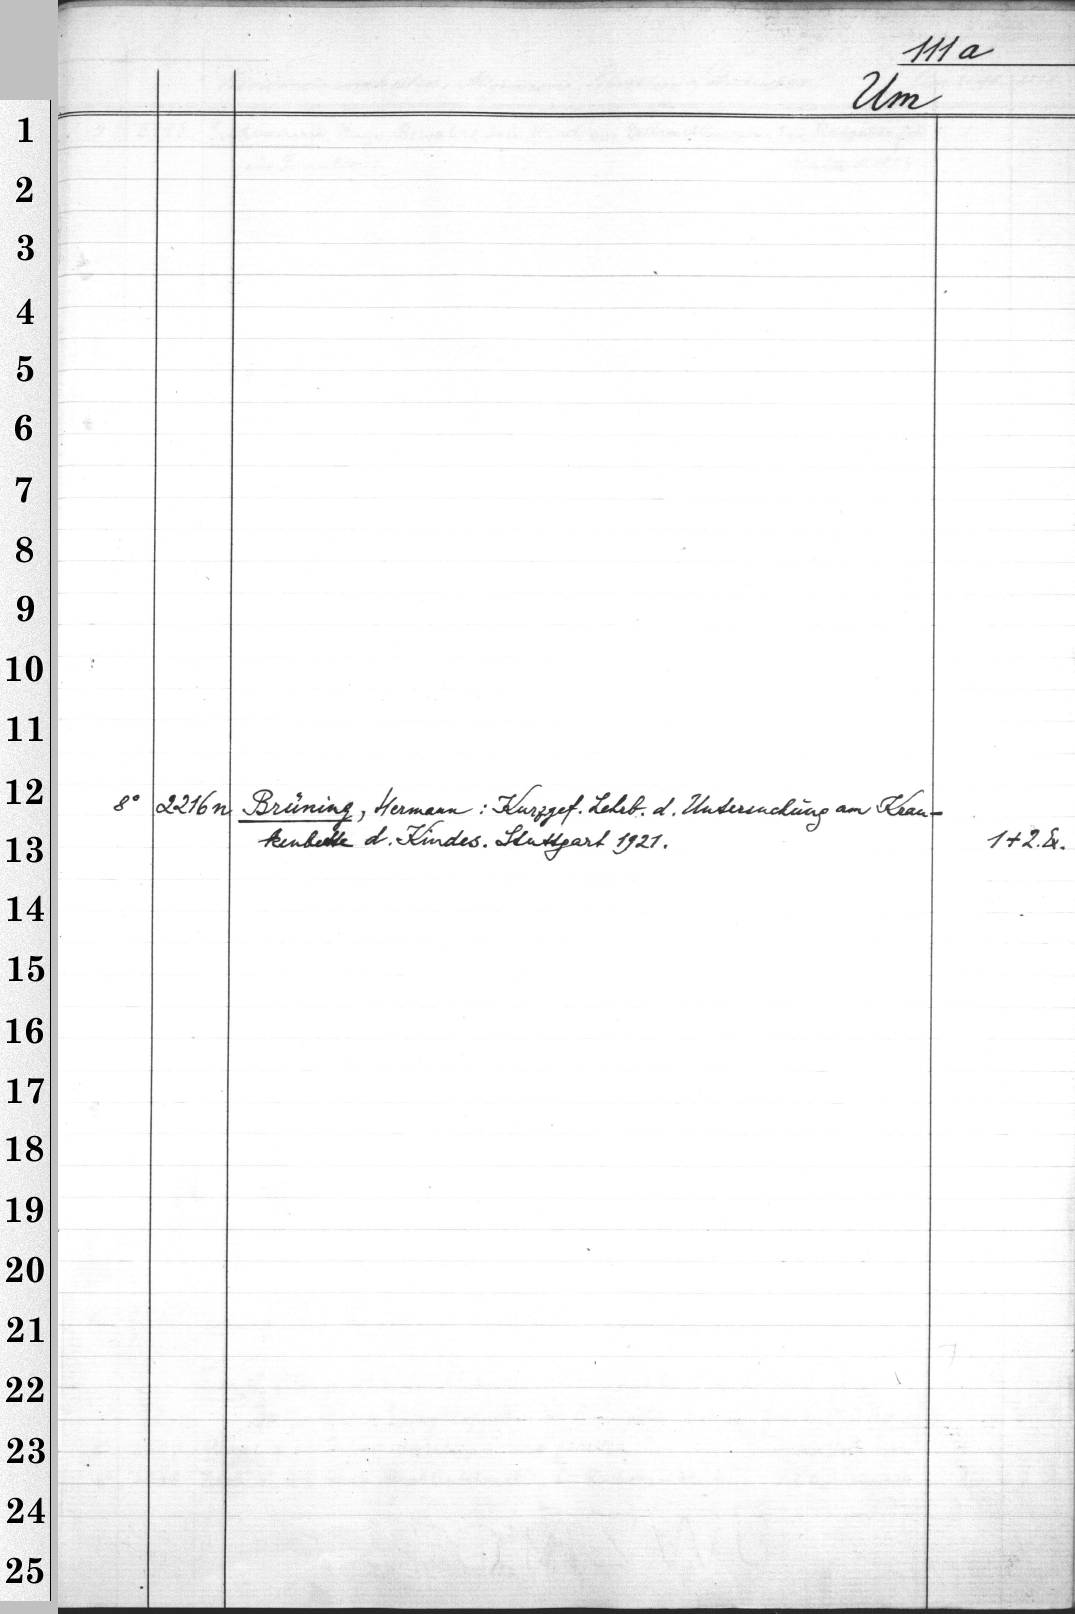 111a
Um
1
2
3
4
5
6
7
8
9
10
11
12
8° 2216n Brüning, Hermann: Kurzgef. Lehrb. d. Untersuchung am Kran-
13
kenbette d. Kindes. Stuttgart 1921. 1+2.Ex.
14
15
16
17
18
19
20
21
22
23
24
25